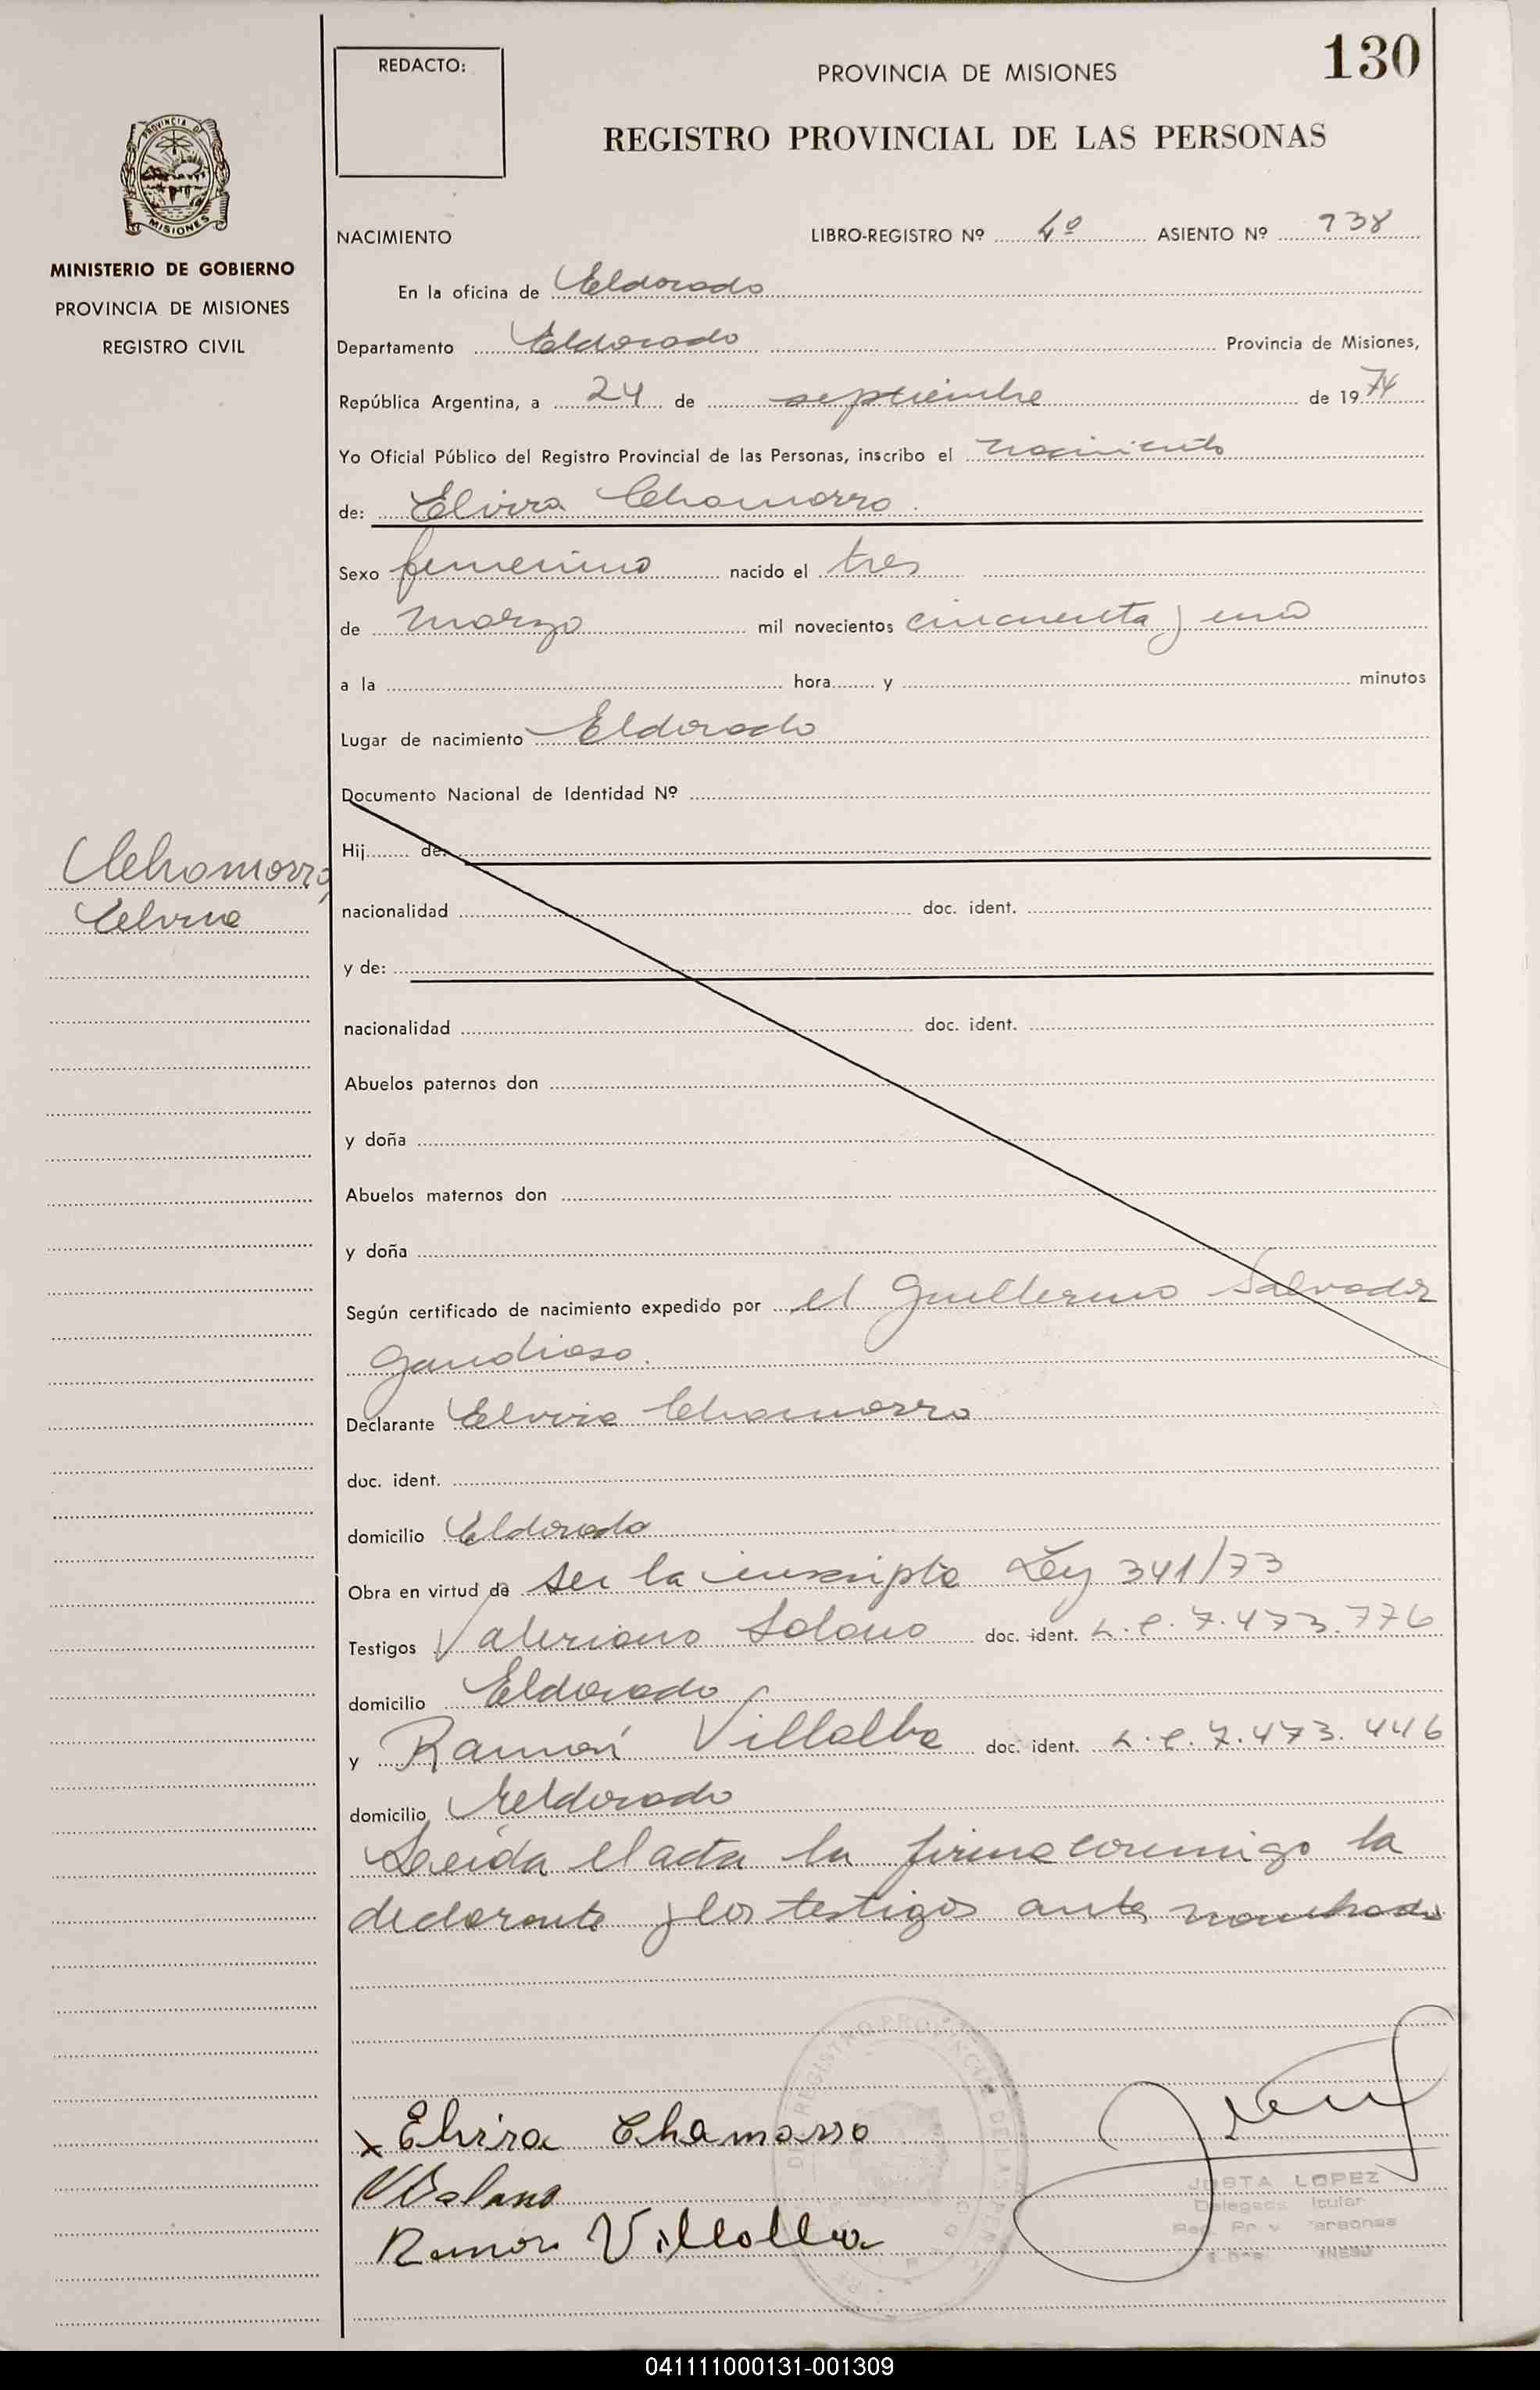 130
REDACTO:
PROVINCIA DE MISIONES
REGISTRO PROVINCIAL DE LAS PERSONAS
PROVINCIA DE
MISIONES
MINISTERIO DE GOBIERNO
PROVINCIA DE MISIONES
REGISTRO CIVIL
NACIMIENTO LIBRO-REGISTRO Nº 4º ASIENTO Nº 738
En la oficina de Eldorado
Departamento Eldorado Provincia de Misiones,
República Argentina, a 24 de septiembre de 1974
Yo Oficial Público del Registro Provincial de las Personas, inscribo el nacimiento
de: Elvira Chamorro.
Sexo femenino nacido el tres
de marzo mil novecientos cincuenta y uno
a la hora y minutos
Lugar de nacimiento Eldorado
Documento Nacional de Identidad Nº
Chamorro,
Elvira
Hij de:
nacionalidad doc. ident.
y de:
nacionalidad doc. ident.
Abuelos paternos don
y doña
Abuelos maternos don
y doña
Según certificado de nacimiento expedido por el Guillermo Salvador
Gaudioso.
Declarante Elvira Chamorro
doc. ident.
domicilio Eldorado
Obra en virtud de ser la inscripta Ley 341/73
Testigos Valeriano Solano doc. ident. L.E. 7.473.776
domicilio Eldorado
y Ramón Villalba doc. ident. L.E. 7.473.446
domicilio Eldorado
Leída el acta la firma conmigo la
declarante y los testigos antes nombrados
x Elvira Chamorro
VSolano
Ramón Villalba
JUSTA LOPEZ
041111000131-001309